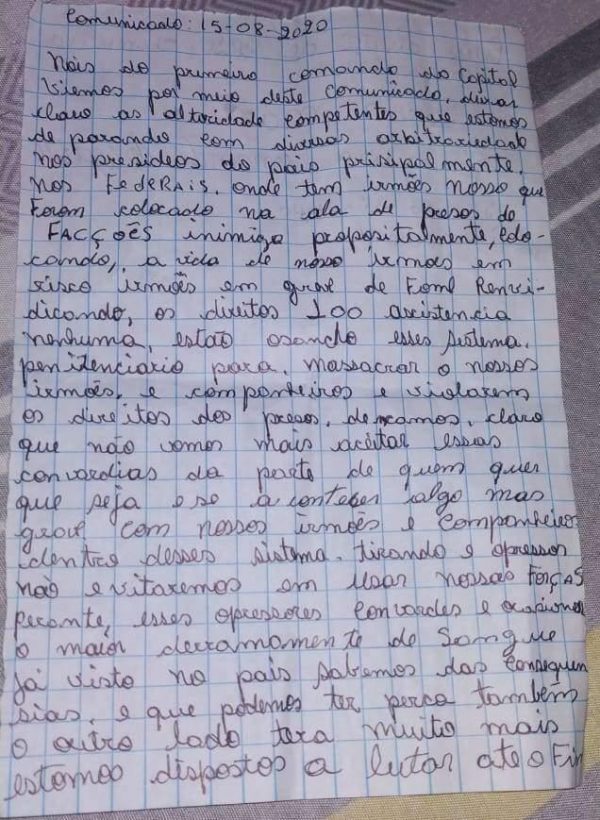 Comunicado: 15-08-2020
Nois do primeiro comando do Capital
viemos por meio deste comunicado, deixar
claro as altoridade competentes que estamos
de parando com diversas arbitrariedade
nos presideos do pais prisipalmente.
nos FedeRAis. onde tem irmões nosso que
Forom colocado na ala de presos de
FACÇOÊS inimiga propositalmente, colo-
cando, a vida de nosso irmoes em
risco irmões em greve de Fome Renvi-
dicando, os direitos 100 assistencia
nenhuma, estão osando esses sistema.
penitenciario para, massacrar o nossos
irmões, e companheiros e violarem
os direitos dos presos, dexamos, claro
que não vamos mais aceitar essas
convardias da parte de quem quer
que seja e se acontecer algo mas
grave com nossos irmões e companheiros
dentro desses sistema. tirando e opressor
não evitaremos em usar nossas FORÇAS
perante, esses opressores convardes e
o maior derramamente de Songue
já visto no pais sabemos das Consequen
sias, e que podemos ter perca também
o outro lado tera muito mais
estamos dispostos a lutar ate o Fim